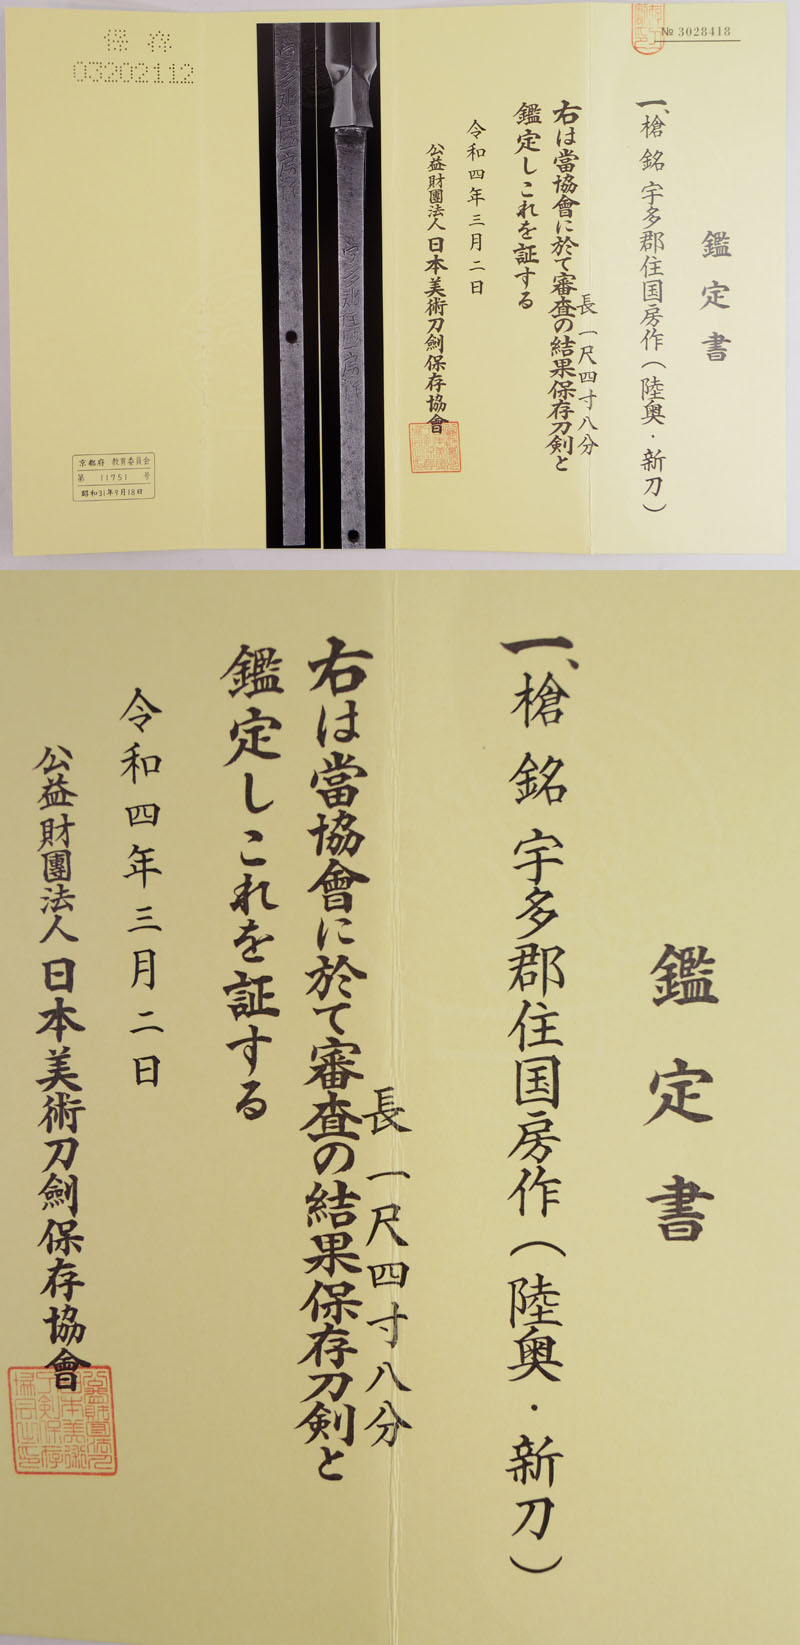 № 3028418
鑑定書
一、槍 銘 宇多郡住国房作(陸奥・新刀)
長 一尺四寸八分
右は當協會に於て審査の結果保存刀剣と
鑑定しこれを証する
令和四年三月二日
公益財團法人 日本美術刀劍保存協會
宇多郡住国房作
保存
03202112
京都府 教育委員会
第 11751 号
昭和31年9月18日
鑑定書
一、槍 銘 宇多郡住国房作(陸奥・新刀)
長 一尺四寸八分
右は當協會に於て審査の結果保存刀剣と
鑑定しこれを証する
令和四年三月二日
公益財團法人 日本美術刀劍保存協會